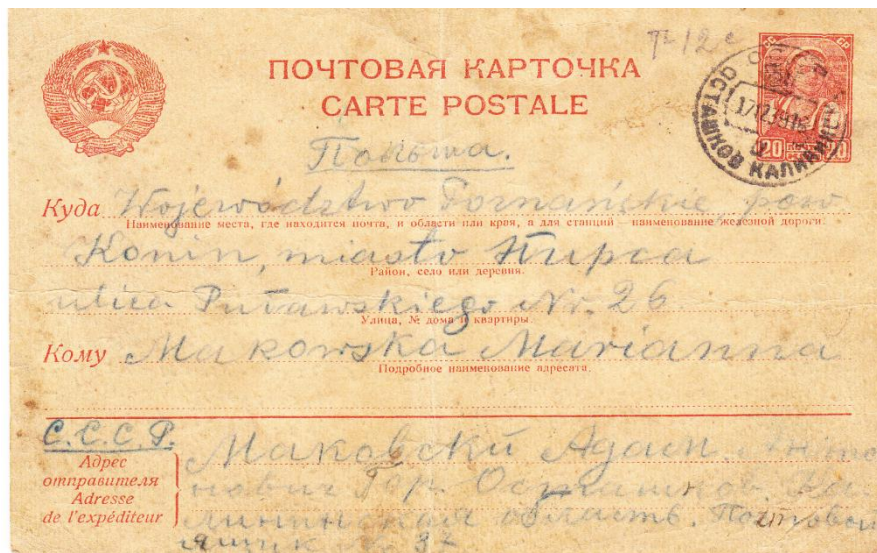 ПОЧТОВАЯ КАРТОЧКА
CARTE POSTALE
Польша.
Куда Województwo Poznańskie, pow
Наименование места, где находится почта, и области или края, а для станций – наименование железной дороги.
Konin, miasto Słupca
Район, село или деревня.
ulica Pułaskiego Nr. 26
Улица, № дома и квартиры
Кому Makowska Marianna
Подробное наименование адресата.
С.С.С.Р.
Адрес
отправителя
Adresse
de l'expéditeur
Маковски Адам Анто
нович Гор. Осташков. Ка
лининская область. Почтовой
ящик № 37
ОСТАШКОВ КАЛИНИНСК
20 20